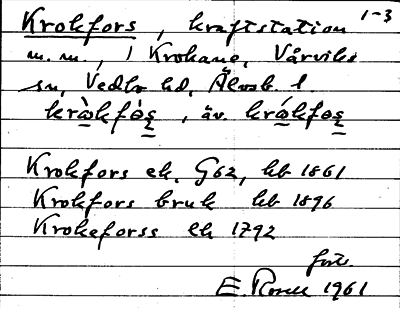 Krokfors, kraftstation 1-3
m.m., i Krokane, Vårviks
sn, Vedbo hd, Älvsb. l.
krò̲kfò̲s̲, äv. kró̲kfo̲s̲
Krokfors ek. G62, hb 1861
Krokfors bruk hb 1896
Krokeforss ek 1792
forts.
E. Rosell 1961